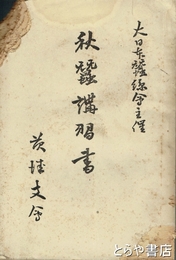 大日本蚕絲會主催
秋蠶講習書
茨城支會
とらや書店